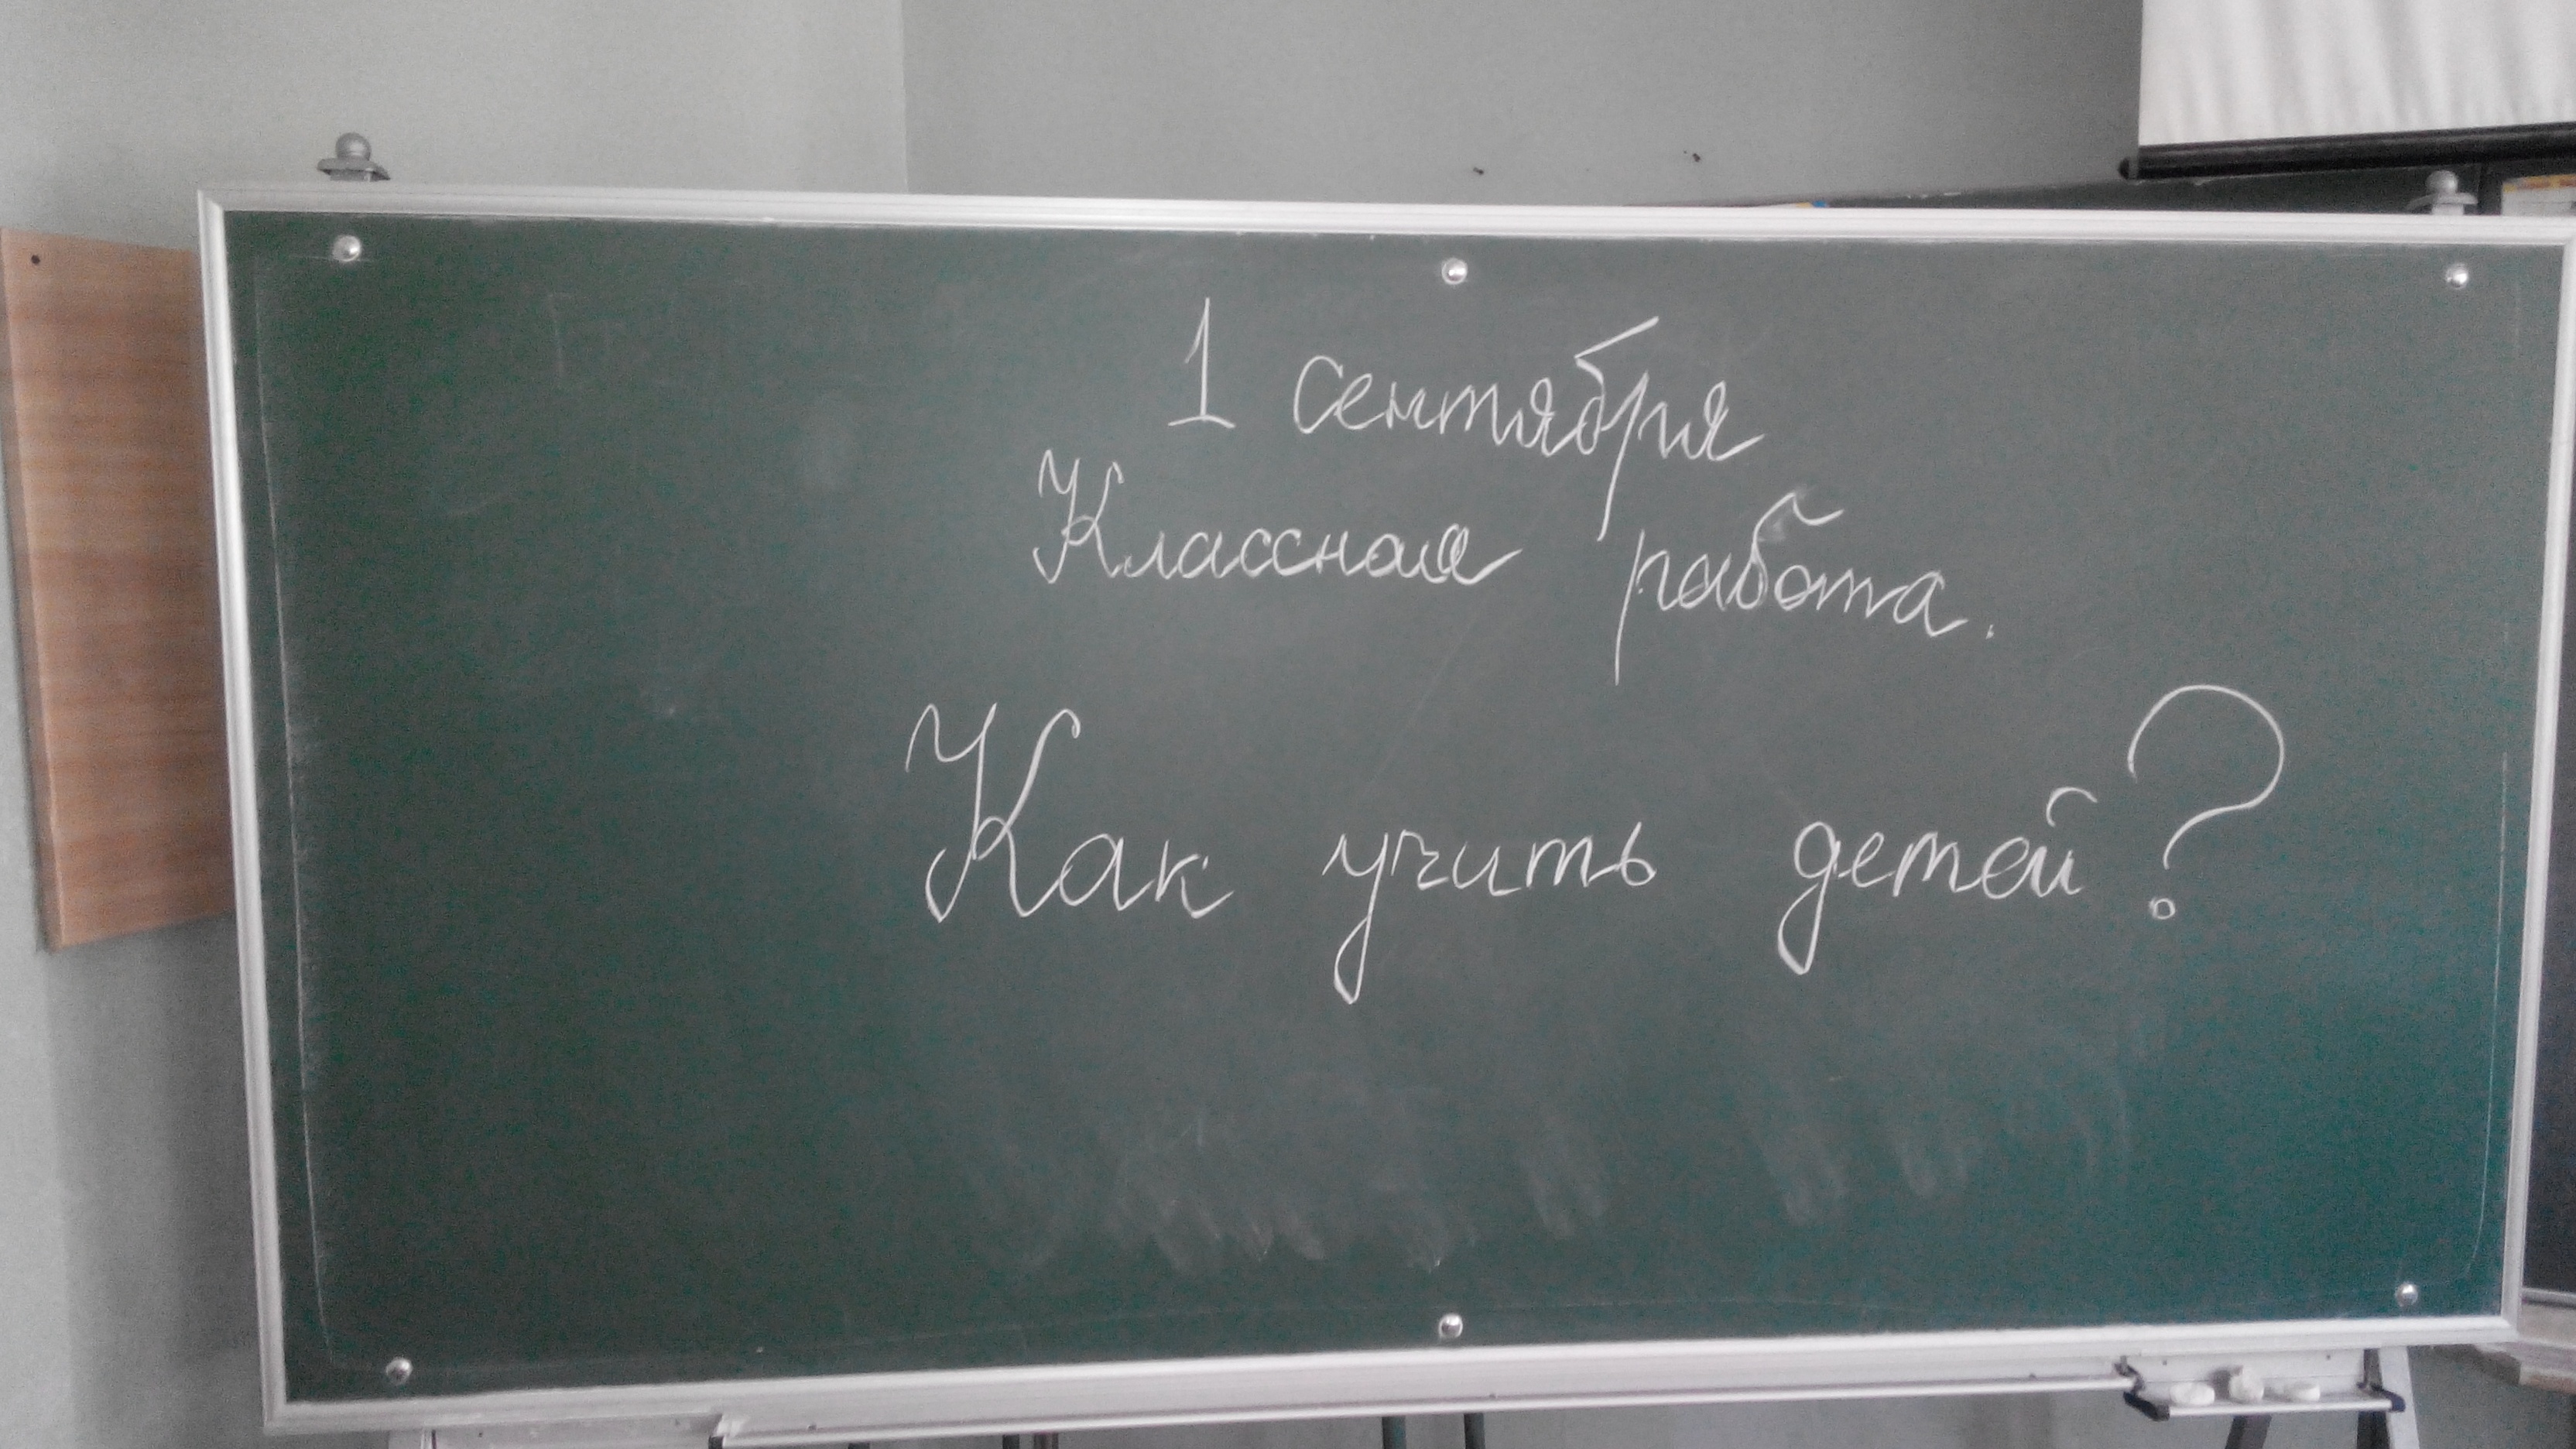 1 сентября
Классная работа.
Как учить детей?